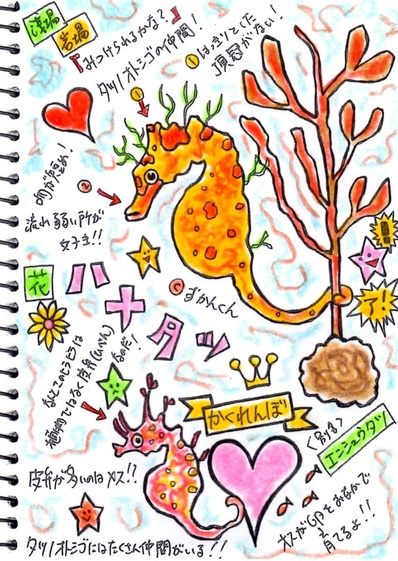 藻場
岩場
『みつけられるかな？』
タツノオトシゴの仲間！
①はっきりとした
頂冠がない！
①
吻が短め！
②
流れ弱い所が
好き！！
!!
ア!
ⓒずかんくん
花
ハナタツ
なんとこのひらひらは
植物ではなく皮弁(ひべん)
なのだ！
かくれんぼ
〈別名〉
エンシュウダツ
皮弁が多いのはメス！！
オスが卵をおなかで
育てるよ！！
タツノオトシゴにはたくさん仲間がいる！！